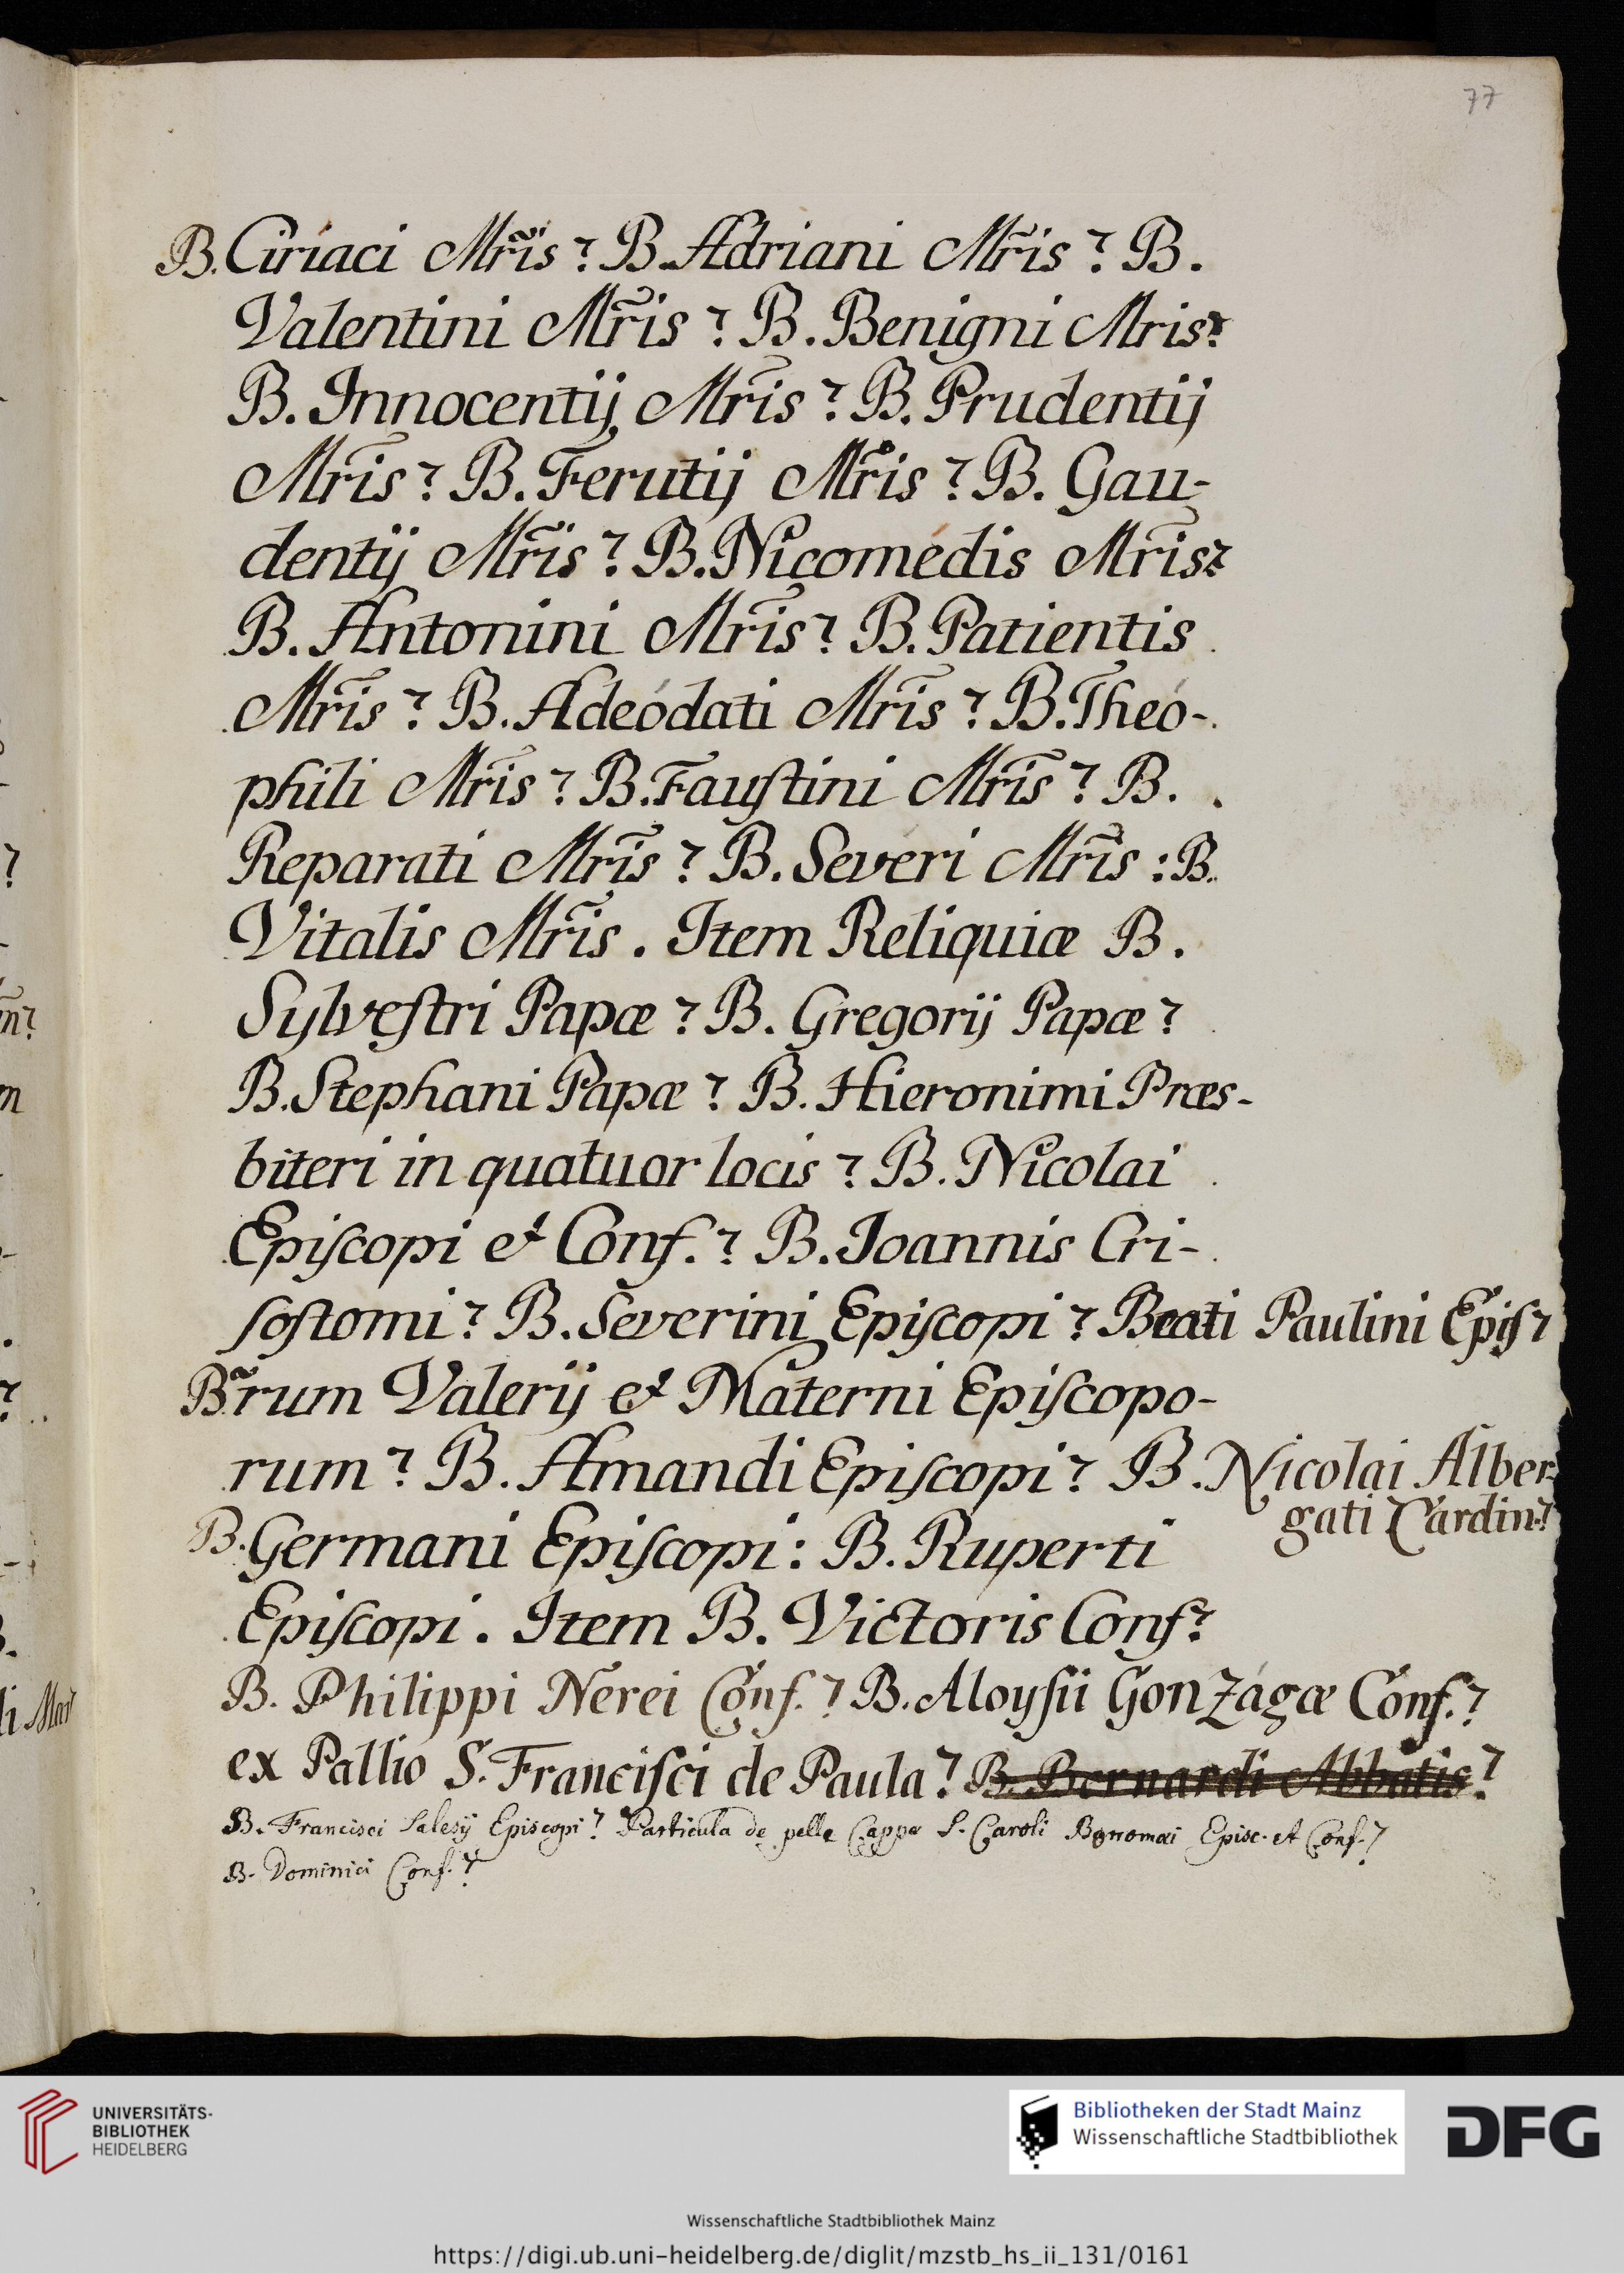 77
B. Ciriaci Mr̃is? B. Adriani Mr̃is? B.
Valentini Mr̃is? B. Benigni Mris?
B. Innocentij Mr̃is? B. Prudentij
Mr̃is? B. Ferutij Mr̃is? B. Gau-
dentij Mr̃is? B. Nicomédis Mr̃is?
B. Antonini Mr̃is? B. Patientis
Mr̃is? B. Adeódati Mr̃is? B. Theó-
phili Mr̃is? B. Fauſtini Mr̃is? B.
Reparati Mr̃is? B. Severi Mr̃is: B.
Vitalis Mr̃is. Item Reliquiæ B.
Sylveſtri Papæ? B. Gregorij Papæ?
B. Stephani Papæ? B. Hieronimi Præs-
biteri in quatuor locis? B. Nicolai
Epiſcopi et Conf.? B. Joannis Cri-
ſoſtomi? B. Severini Epiſcopi? Beati Paulini Epiſ?
Br̃rum Valerij et Materni Epiſcopo-
rum? B. Amandi Epiſcopi? B. Nicolai Alber-
gati Cardin?
B. Germani Epiſcopi: B. Ruperti
Epiſcopi. Item B. Victoris Conf?
B. Philippi Nerei Conf.? B. Aloyſii Gonzágæ Conf.?
ex Pallio S. Franciſci de Paula? B. Bernardi Abbatis?
B. Francisci Salesij Episcopi? Particula de pelle Cappæ S. Caroli Borromæi Episc. et Conf.?
B. Dominici Conf.?
?
m?
m
?
li Mar?
UNIVERSITÄTS-
BIBLIOTHEK
HEIDELBERG
Bibliotheken der Stadt Mainz
Wissenschaftliche Stadtbibliothek
DFG
Wissenschaftliche Stadtbibliothek Mainz
https://digi.ub.uni-heidelberg.de/diglit/mzstb_hs_ii_131/0161